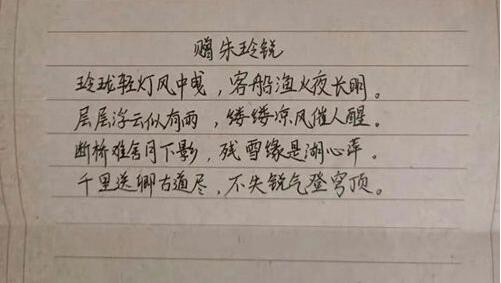 赠朱玲锐
玲珑轻灯风中曳，客船渔火夜长明。
层层浮云似有雨，缕缕凉风催人醒。
断桥难舍月下影，残雪缘是湖心萍。
千里送卿古道尽，不失锐气登穹顶。